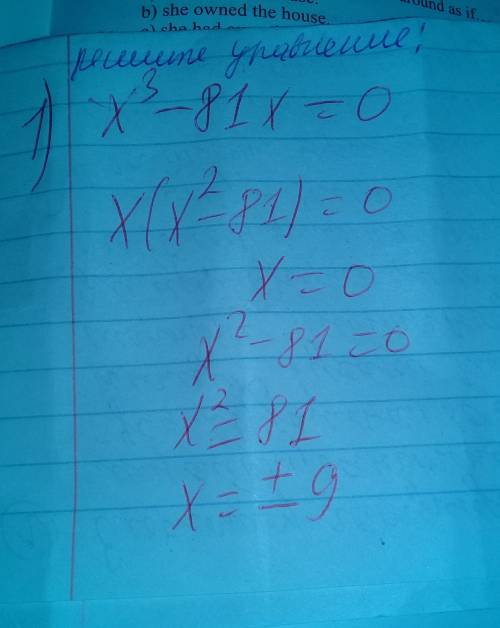 b) she owned the house.
around as if
she had
решите уравнение:
1) x³ - 81x = 0
x(x² - 81) = 0
x = 0
x² - 81 = 0
x² = 81
x = ± 9